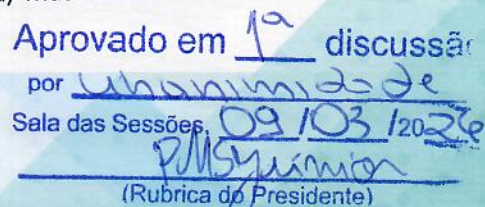 Aprovado em 1ª discussão
por unanimidade
Sala das Sessões, 09/03/2026
(Rubrica do Presidente)